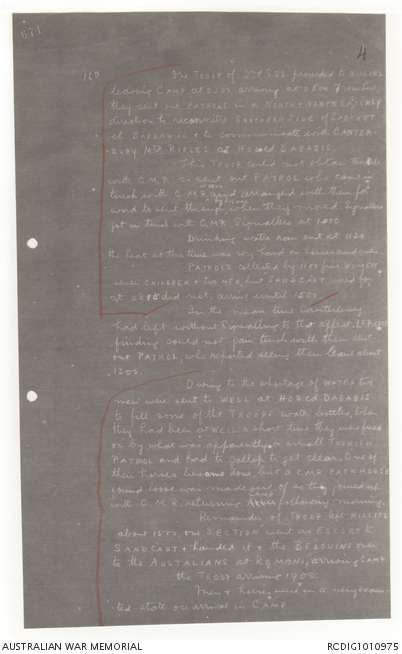 671
4
160
One Troop of 2nd proceeded to
leaving CAMP at arriving at from here
they sent one PATROL in a NORTH EASTERLY
direction to reconnoitre SOUTHERN SIDE of SABKHET
el BARDAWIL & to communicate with CANTER-
BURY Mtd RIFLES at HOD el DABABIS.
This Troop could not obtain touch
with C.M.R. so sent out PATROL who came in
touch with C.M.R. and arranged with them for
word to sent through when they moved. Signallers
got in touch with C.M.R. Signallers at 1000
Drinking water ran out at 1120
the heat at this time was very hard on horses and men
PATROLS collected by 1100
CHILDREN & two MEN, but SANDCART
at did not arrive until 1500
In the mean time Canterbury
had left without signalling to that effect.
finding could not gain touch with them sent
out PATROL who reported seeing them leave about
1200.
Owing to the shortage of WATER two
men were sent to WELL at HOD el DABABIS
to fill some of the TROOPS water bottles, when
they had been at WELL a short time they were fired
on by what was apparently a small TURKISH
PATROL and had to gallop to get clear. One of
their horses became done, but a C.M.R. PACKHORSE
found loose was made use of as they joined up
with C.M.R. returning CAMP following morning.
Remainder of TROOP left
about 1500, one SECTION went as ESCORT to
SANDCART & handed it & the BEDOUINS over
to the AUSTRALIANS at ROMANI, arriving CAMP
the TROOP arriving 1905
Men & horses were in a very exhaus-
ted state on arrival in CAMP
AUSTRALIAN WAR MEMORIAL
RCDIG1010975